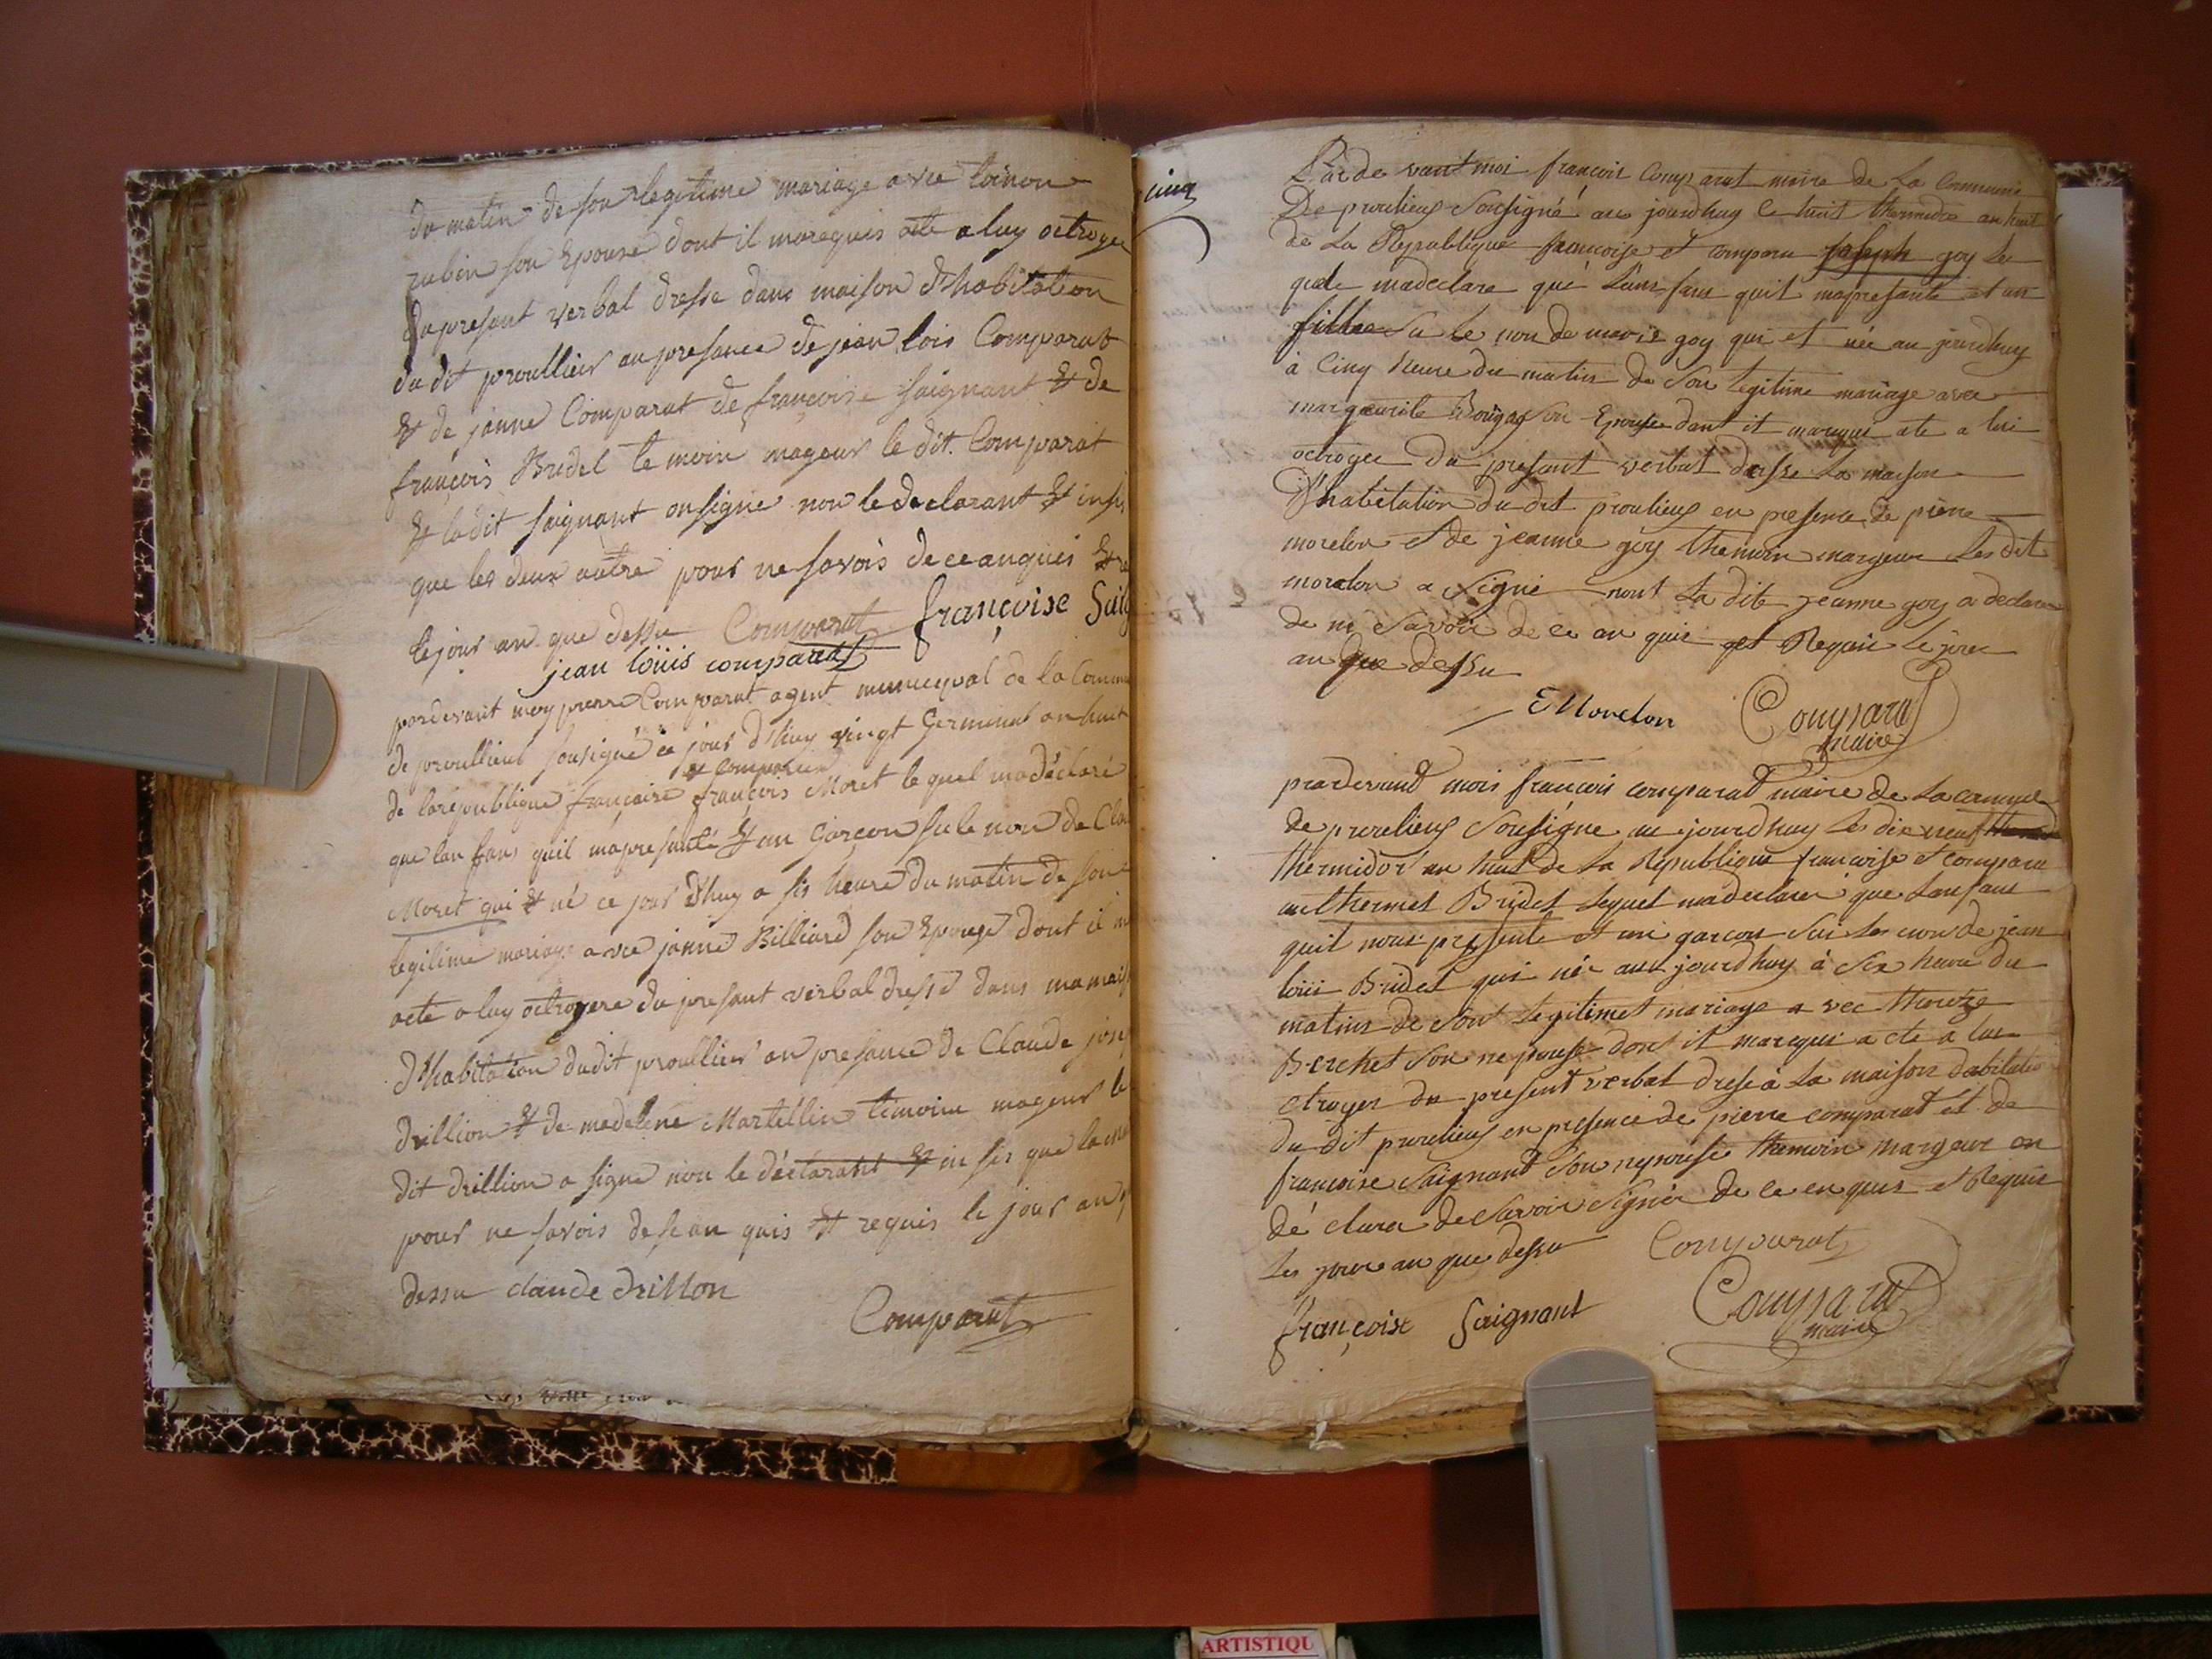 du matin de son legitime mariage avec toinon
rubin son Epouse dont il marequis acte a luy octroyer
du presant verbal dressé dans maison d'habitation
du dit proullieu an presance de jean lois Comparat
& de janne Comparat de françoise saignant & de
françois Bridel temoin mageur le dit Comparat
& ladit saignant on signe non le declarant &
que les deux autre pour ne savois de ce anquis &
le jour an que dessu Comparat françoise
jean loüis comparat
pardevant moy pierre Comparat agent municipal de la
de proullieu sousigné ce jour d'huy vingt Germinal an huit
& comparu
de la republique françaire françois Moret le quel madéclaré
que lan fans quil mapresanté & un Garcon su le non de
Moret qui & né ce jour d'huy a sis heure du matin de son
legitime mariage avec janne Billiard son Epouse dont il
acte a luy octroyere du presant verbal dressé dans ma
d'habitation dudit proullieu an presance de Claude
drillion & de madelene Martellin temoin mageur le
dit drillion a signe non le déclarant & in sis que
pour ne savois de se an quis & requis le jour an
dessu claude drillon
Comparat
cinq
Par de vant moi françois Comparat maire de La Commune
De proulieu Sousigné au jourdhuy le huit thermidor an huit
de La Republique francoise et comparu joseph goy Le
quel madeclare que Lanfans quit mapresante et un
fille su le non de marie goy qui et née au jourdhuy
à Cinq heure du matin de Son legitime mariage avec
margeurite son Epouse dont it marequi ate a lui
octroyer du presant verbal dresse La maison
D'habitation du dit proulieu en presence de pierre
morelon et de jeanne goy themoin margeur Les dit
morelon a Signé nont La dite jeanne goy a declare
de ne Savoir de ce an quis et Requis Le jour
an que dessu
Morelon Comparat
maire
pardevand mois françois comparat maire de La
de proulieu Sousigne au jourdhuy Les dix neuf
thermidor an huit de La Republique francoise et comparu
anthermet Bridet Lequel madeclarer que Lanfant
quit nous presente et un garcon Sui Les non de jean
loüi Bridet qui née aux jourdhuy à Six heure du
matins de Sont Legitimet mariage a vec
Berchet Son nepouse dont it marequi acte a lui
ctroyer du present verbal dresé à La maison dabitatio
du dit proulieu en presence de pierre comparat et de
francoise Saignand Son nepouse themoin margeur on
dé clarer de Savoir Signér de ce enquis et Requis
Les jour an que dessu Comparat
françoise Saignant Comparat
maire
ARTISTIQU